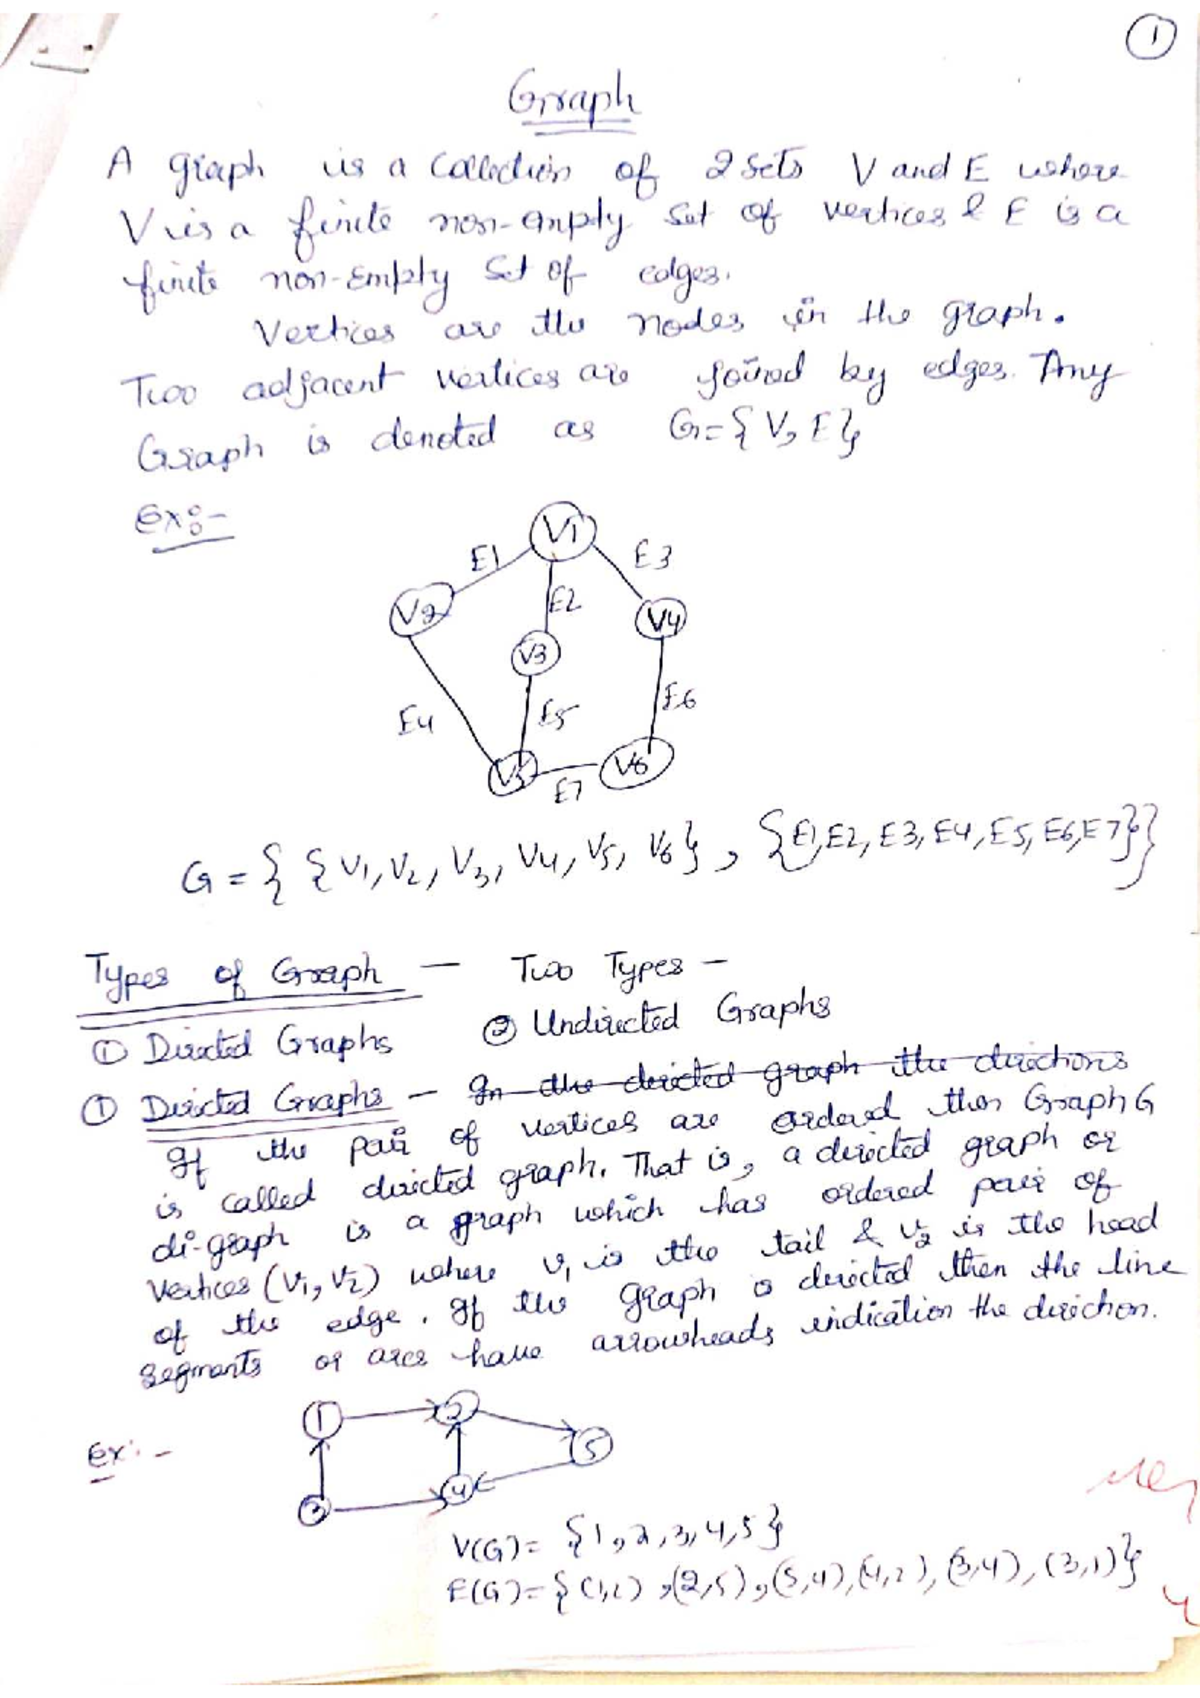 1
Graph
A graph is a collection of 2 sets V and E where
V is a finite non-empty set of vertices & E is a
finite non-empty set of edges.
Vertices are the nodes in the graph.
Two adjacent vertices are joined by edges. Any
Graph is denoted as G={V, E}
Ex:-
V1
E1
E3
V2
E2
V4
V3
E4
E5
E6
V5
V6
E7
G = { {V1, V2, V3, V4, V5, V6}, {E1, E2, E3, E4, E5, E6, E7}}
Types of Graph — Two Types –
① Directed Graphs ② Undirected Graphs
① Directed Graphs – In the directed graph the directions
If the pair of vertices are ordered then Graph G
is called directed graph. That is, a directed graph or
di-graph is a graph which has ordered pair of
vertices (V1, V2) where v1 is the tail & v2 is the head
of the edge. If the graph is directed then the line
segments or arcs have arrowheads indication the direction.
Ex:-
1
2
5
3
4
V(G) = {1, 2, 3, 4, 5}
E(G) = {(1,2), (2,5), (5,4), (4,2), (3,4), (3,1)}